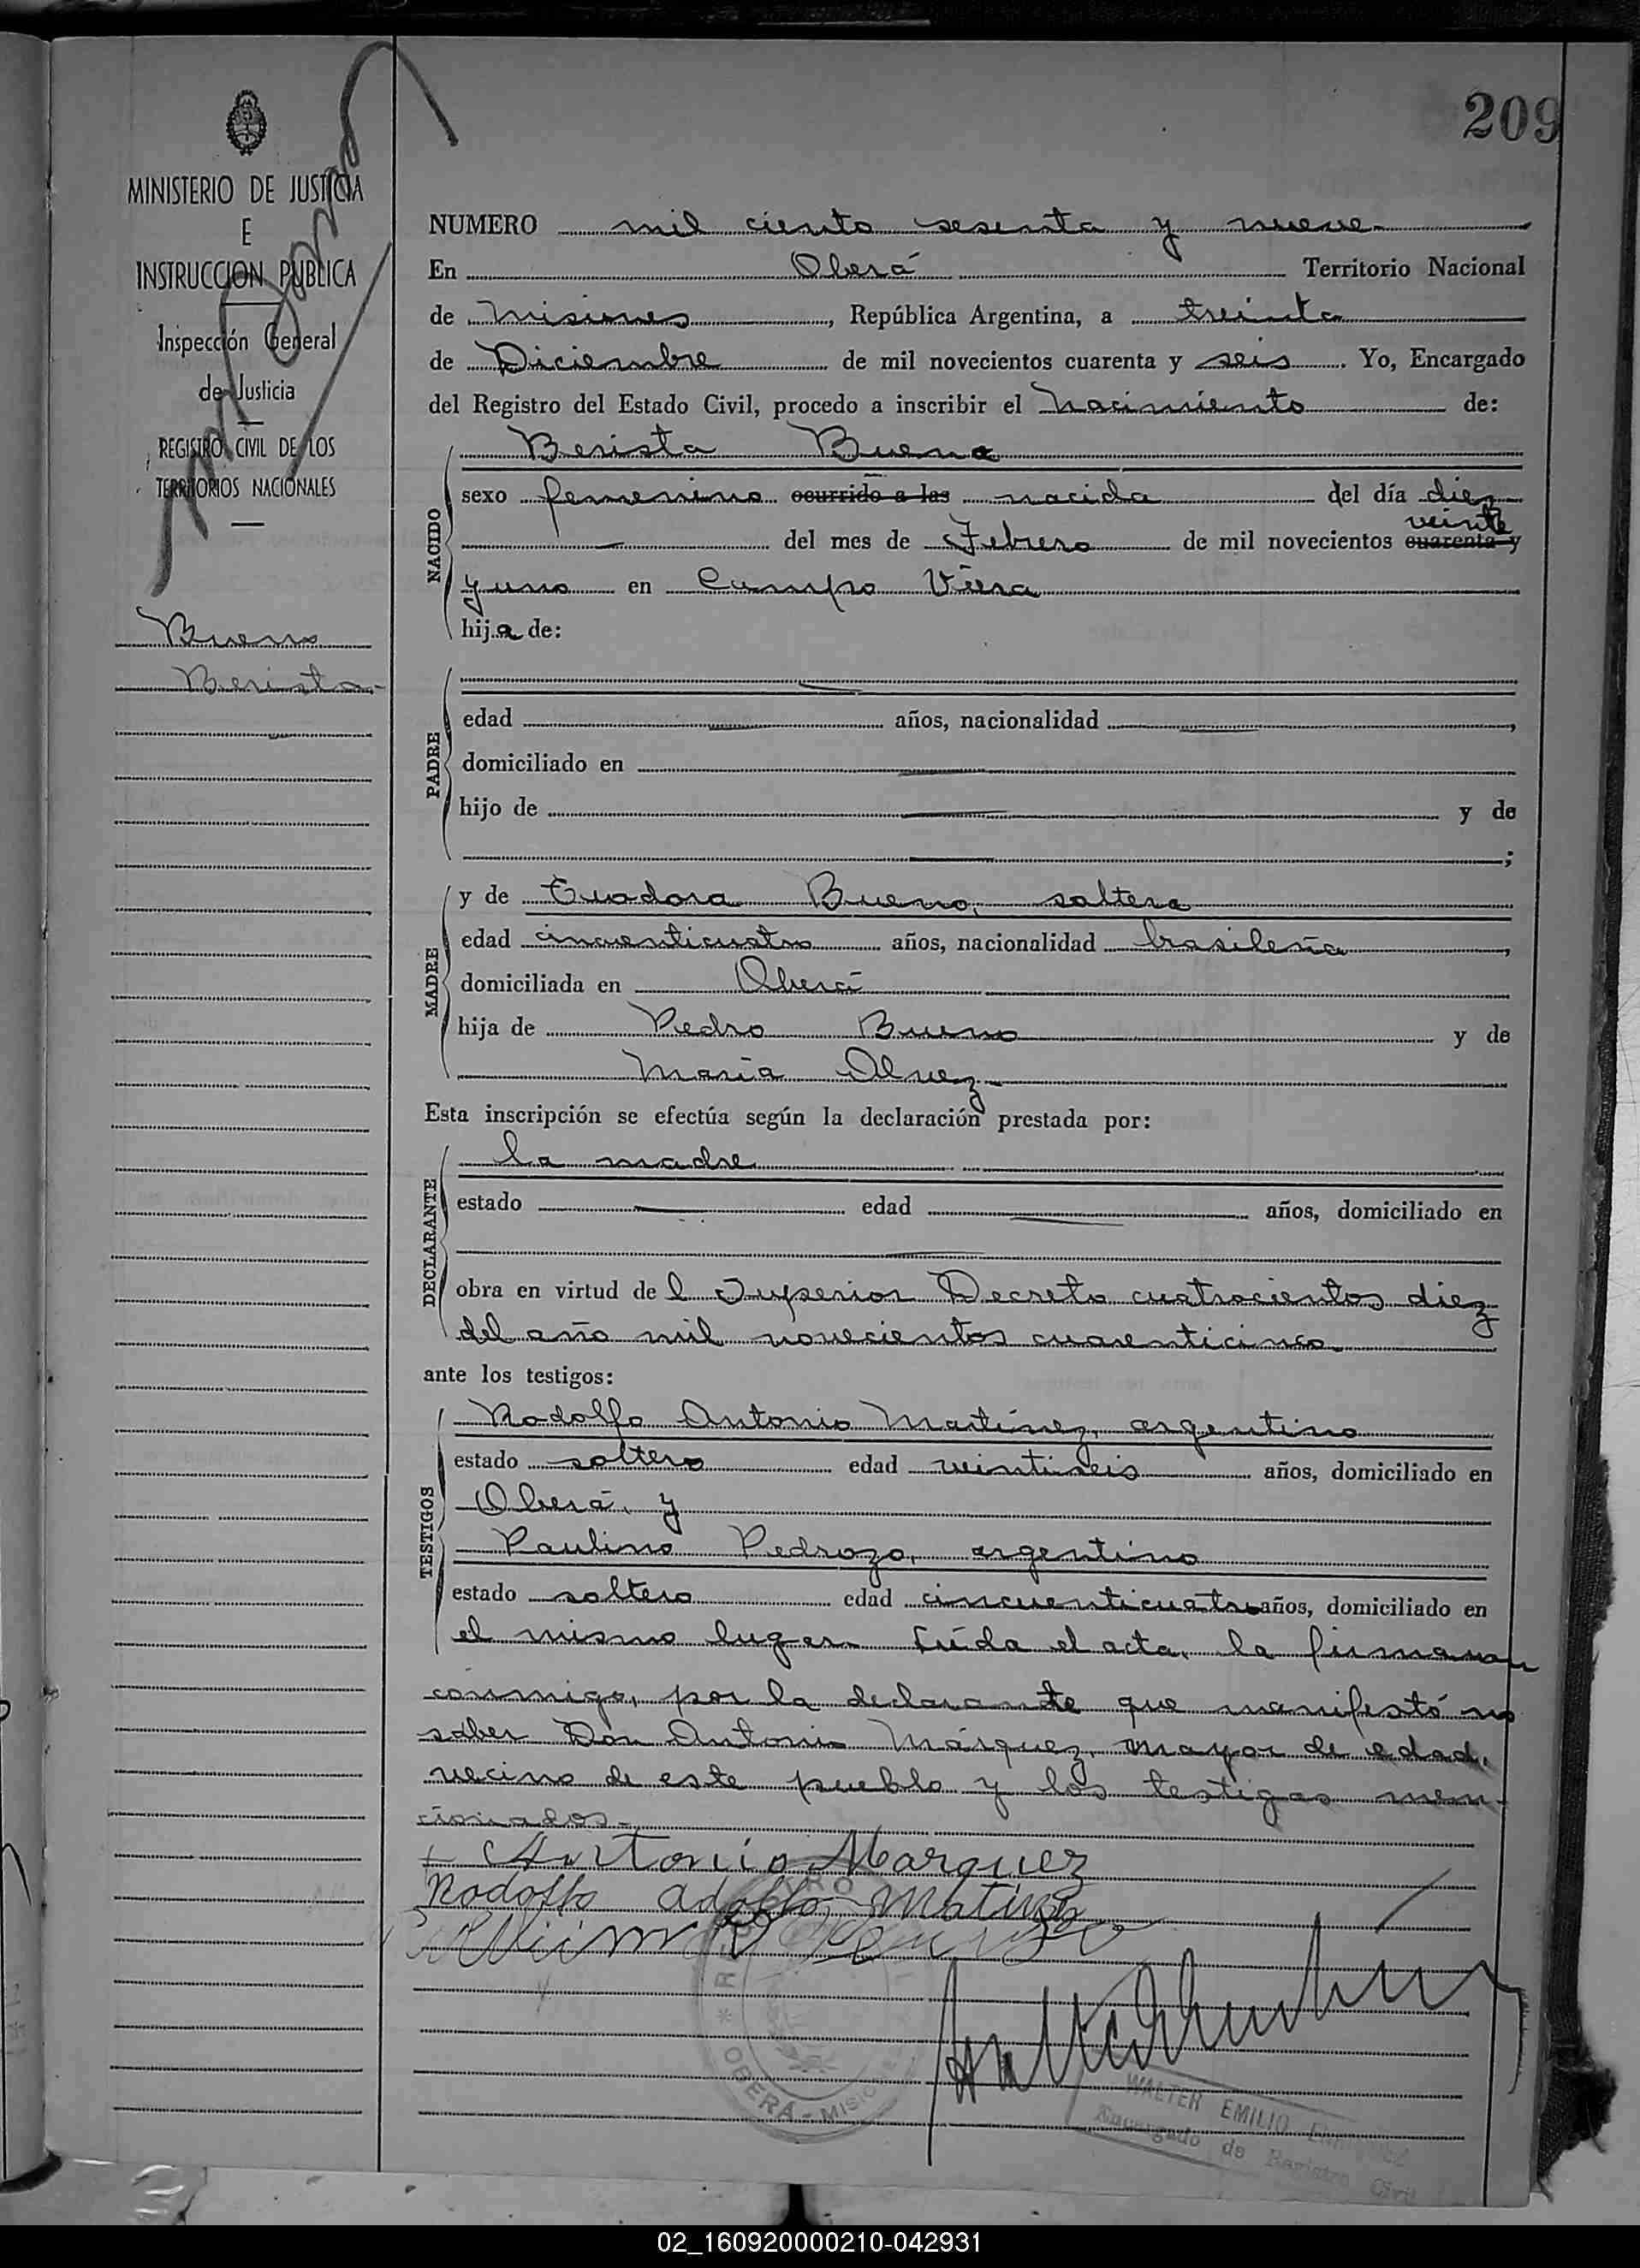 209
MINISTERIO DE JUSTICIA
E
INSTRUCCION PUBLICA
Inspección General
de Justicia
REGISTRO CIVIL DE LOS
TERRITORIOS NACIONALES
Bueno
Berista.-
NUMERO mil ciento sesenta y nueve.-
En Oberá Territorio Nacional
de Misiones, República Argentina, a treinta
de Diciembre de mil novecientos cuarenta y seis. Yo, Encargado
del Registro del Estado Civil, procedo a inscribir el Nacimiento de:
NACIDO
Berista Bueno
sexo femenino ocurrido a las nacida del día diez
veinte
del mes de Febrero de mil novecientos cuarenta y
y uno en Campo Viera
hija de:
PADRE
edad años, nacionalidad ,
domiciliado en
hijo de y de
;
MADRE
y de Eudora Bueno, soltera
edad cincuenticuatro años, nacionalidad brasileña,
domiciliada en Oberá
hija de Pedro Bueno y de
María Alvez.-
Esta inscripción se efectúa según la declaración prestada por:
DECLARANTE
la madre
estado edad años, domiciliado en
obra en virtud de l Superior Decreto cuatrocientos diez
del año mil novecientos cuarenticinco.
ante los testigos:
TESTIGOS
Rodolfo Antonio Martínez, argentino
estado soltero edad veintiseis años, domiciliado en
Oberá, y
Paulino Pedrozo, argentino
estado soltero edad cincuenticuatro años, domiciliado en
el mismo lugar.- Leída el acta, la firmaron
conmigo, por la declarante que manifestó no
saber Don Antonio Márquez, mayor de edad,
vecino de este pueblo y los testigos men-
cionados.-
Antonio Marquez
Rodolfo Adolfo Matinez
OBERÁ - MISIONES
WALTER EMILIO
Encargado de Registro Civil
02_160920000210-042931